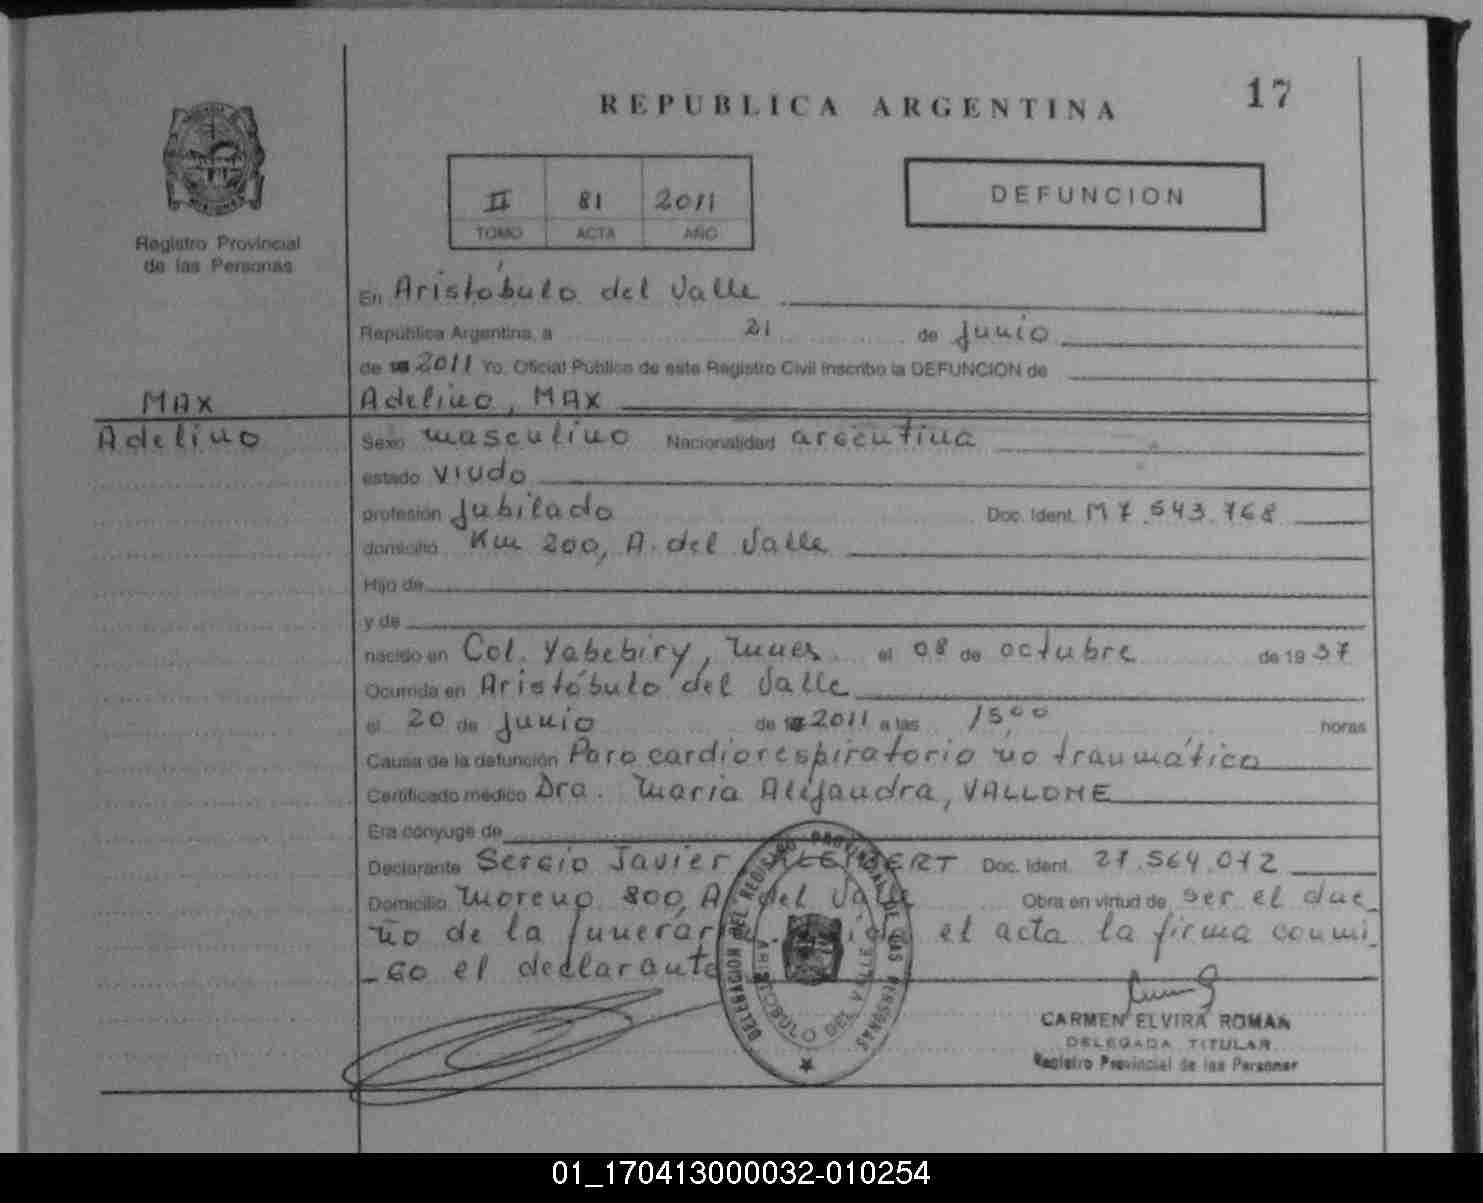 REPUBLICA ARGENTINA
17
II 81 2011
TOMO ACTA AÑO
DEFUNCION
Registro Provincial
de las Personas
En Aristóbulo del Valle
República Argentina, a 21 de junio
de 2011 Yo, Oficial Público de este Registro Civil inscribo la DEFUNCION de
MAX
Adelino, MAX
Adelino
Sexo masculino Nacionalidad argentina
estado viudo
profesión jubilado Doc. Ident. M7.543.768
domicilio Km 200, A. del Valle
Hijo de
y de
nacido en Col. Yabebiry, Mnes el 08 de octubre de 1937
Ocurrida en Aristóbulo del Valle
el 20 de junio de 2011 a las 15,00 horas
Causa de la defunción Paro cardiorespiratorio no traumático
Certificado médico Dra. María Alejandra, VALLONE
Era cónyuge de
Declarante Sergio Javier Doc. Ident. 27.564.072
Domicilio Moreno 800, A. del Valle Obra en virtud de ser el due_
ño de la el acta la firma conmi_
_go el declarante
DELEGACION DEL REGISTRO PROVINCIAL DE LAS PERSONAS
ARISTOBULO DEL VALLE
CARMEN ELVIRA ROMAN
DELEGADA TITULAR
Registro Provincial de las Personas
01_170413000032-010254